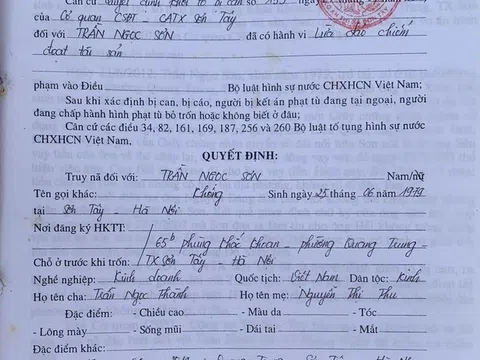 Căn cứ quyết định khởi tố bị can số
của Cơ quan CSĐT - CATX Sơn Tây
đối với TRẦN NGỌC SƠN đã có hành vi Lừa đảo chiếm
đoạt tài sản
phạm vào Điều Bộ luật hình sự nước CHXHCN Việt Nam;
Sau khi xác định bị can, bị cáo, người bị kết án phạt tù đang tại ngoại, người
đang chấp hành hình phạt tù bỏ trốn hoặc không biết ở đâu;
Căn cứ các điều 34, 82, 161, 169, 187, 256 và 260 Bộ luật tố tụng hình sự nước
CHXHCN Việt Nam,
QUYẾT ĐỊNH:
Truy nã đối với: TRẦN NGỌC SƠN Nam/nữ
Tên gọi khác: Không Sinh ngày 25 tháng 06 năm 1979
tại Sơn Tây - Hà Nội
Nơi đăng ký HKTT:
65b phùng khắc khoan - phường Quang Trung -
Chỗ ở trước khi trốn: TX Sơn Tây - Hà Nội
Nghề nghiệp: Kinh doanh Quốc tịch: Việt Nam Dân tộc: Kinh
Họ tên cha: Trần Ngọc Thành Họ tên mẹ: Nguyễn Thị Thu
Đặc điểm: - Chiều cao - Màu da - Tóc
- Lông mày - Sống mũi - Dái tai - Mắt
Đặc điểm khác: